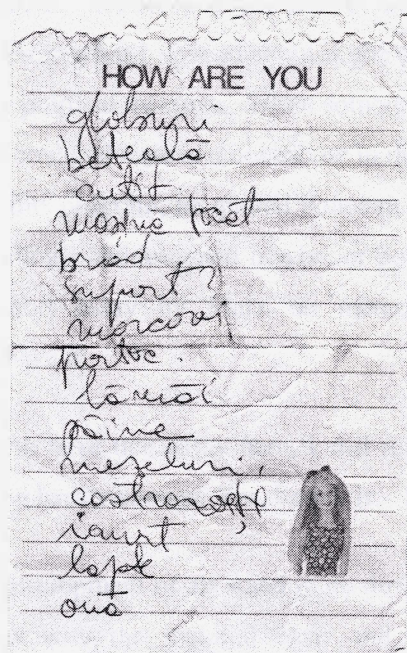 HOW ARE YOU
globuri
beteală
cuțit
mașină tocat
brad
suport
morcovi
portoc.
lămâi
pâine
mezeluri,
castraveți
iaurt
lapte
ouă